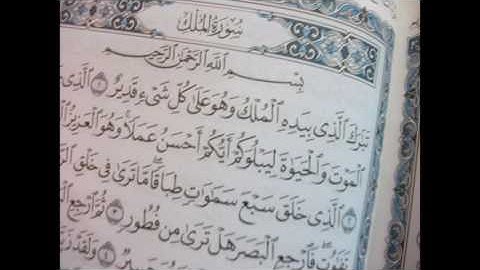 سُورَةُ الْمُلْكِ
بِسْمِ اللَّهِ الرَّحْمَٰنِ الرَّحِيمِ
تَبَارَكَ الَّذِي بِيَدِهِ الْمُلْكُ وَهُوَ عَلَىٰ كُلِّ شَيْءٍ قَدِيرٌ ١ الَّذِي
الْمَوْتَ وَالْحَيَاةَ لِيَبْلُوَكُمْ أَيُّكُمْ أَحْسَنُ عَمَلًا وَهُوَ الْعَزِيزُ
٢ الَّذِي خَلَقَ سَبْعَ سَمَاوَاتٍ طِبَاقًا مَّا تَرَىٰ فِي خَلْقِ
تَفَاوُتٍ فَارْجِعِ الْبَصَرَ هَلْ تَرَىٰ مِن فُطُورٍ ٣ ثُمَّ ارْجِعِ
٤ وَلَقَدْ